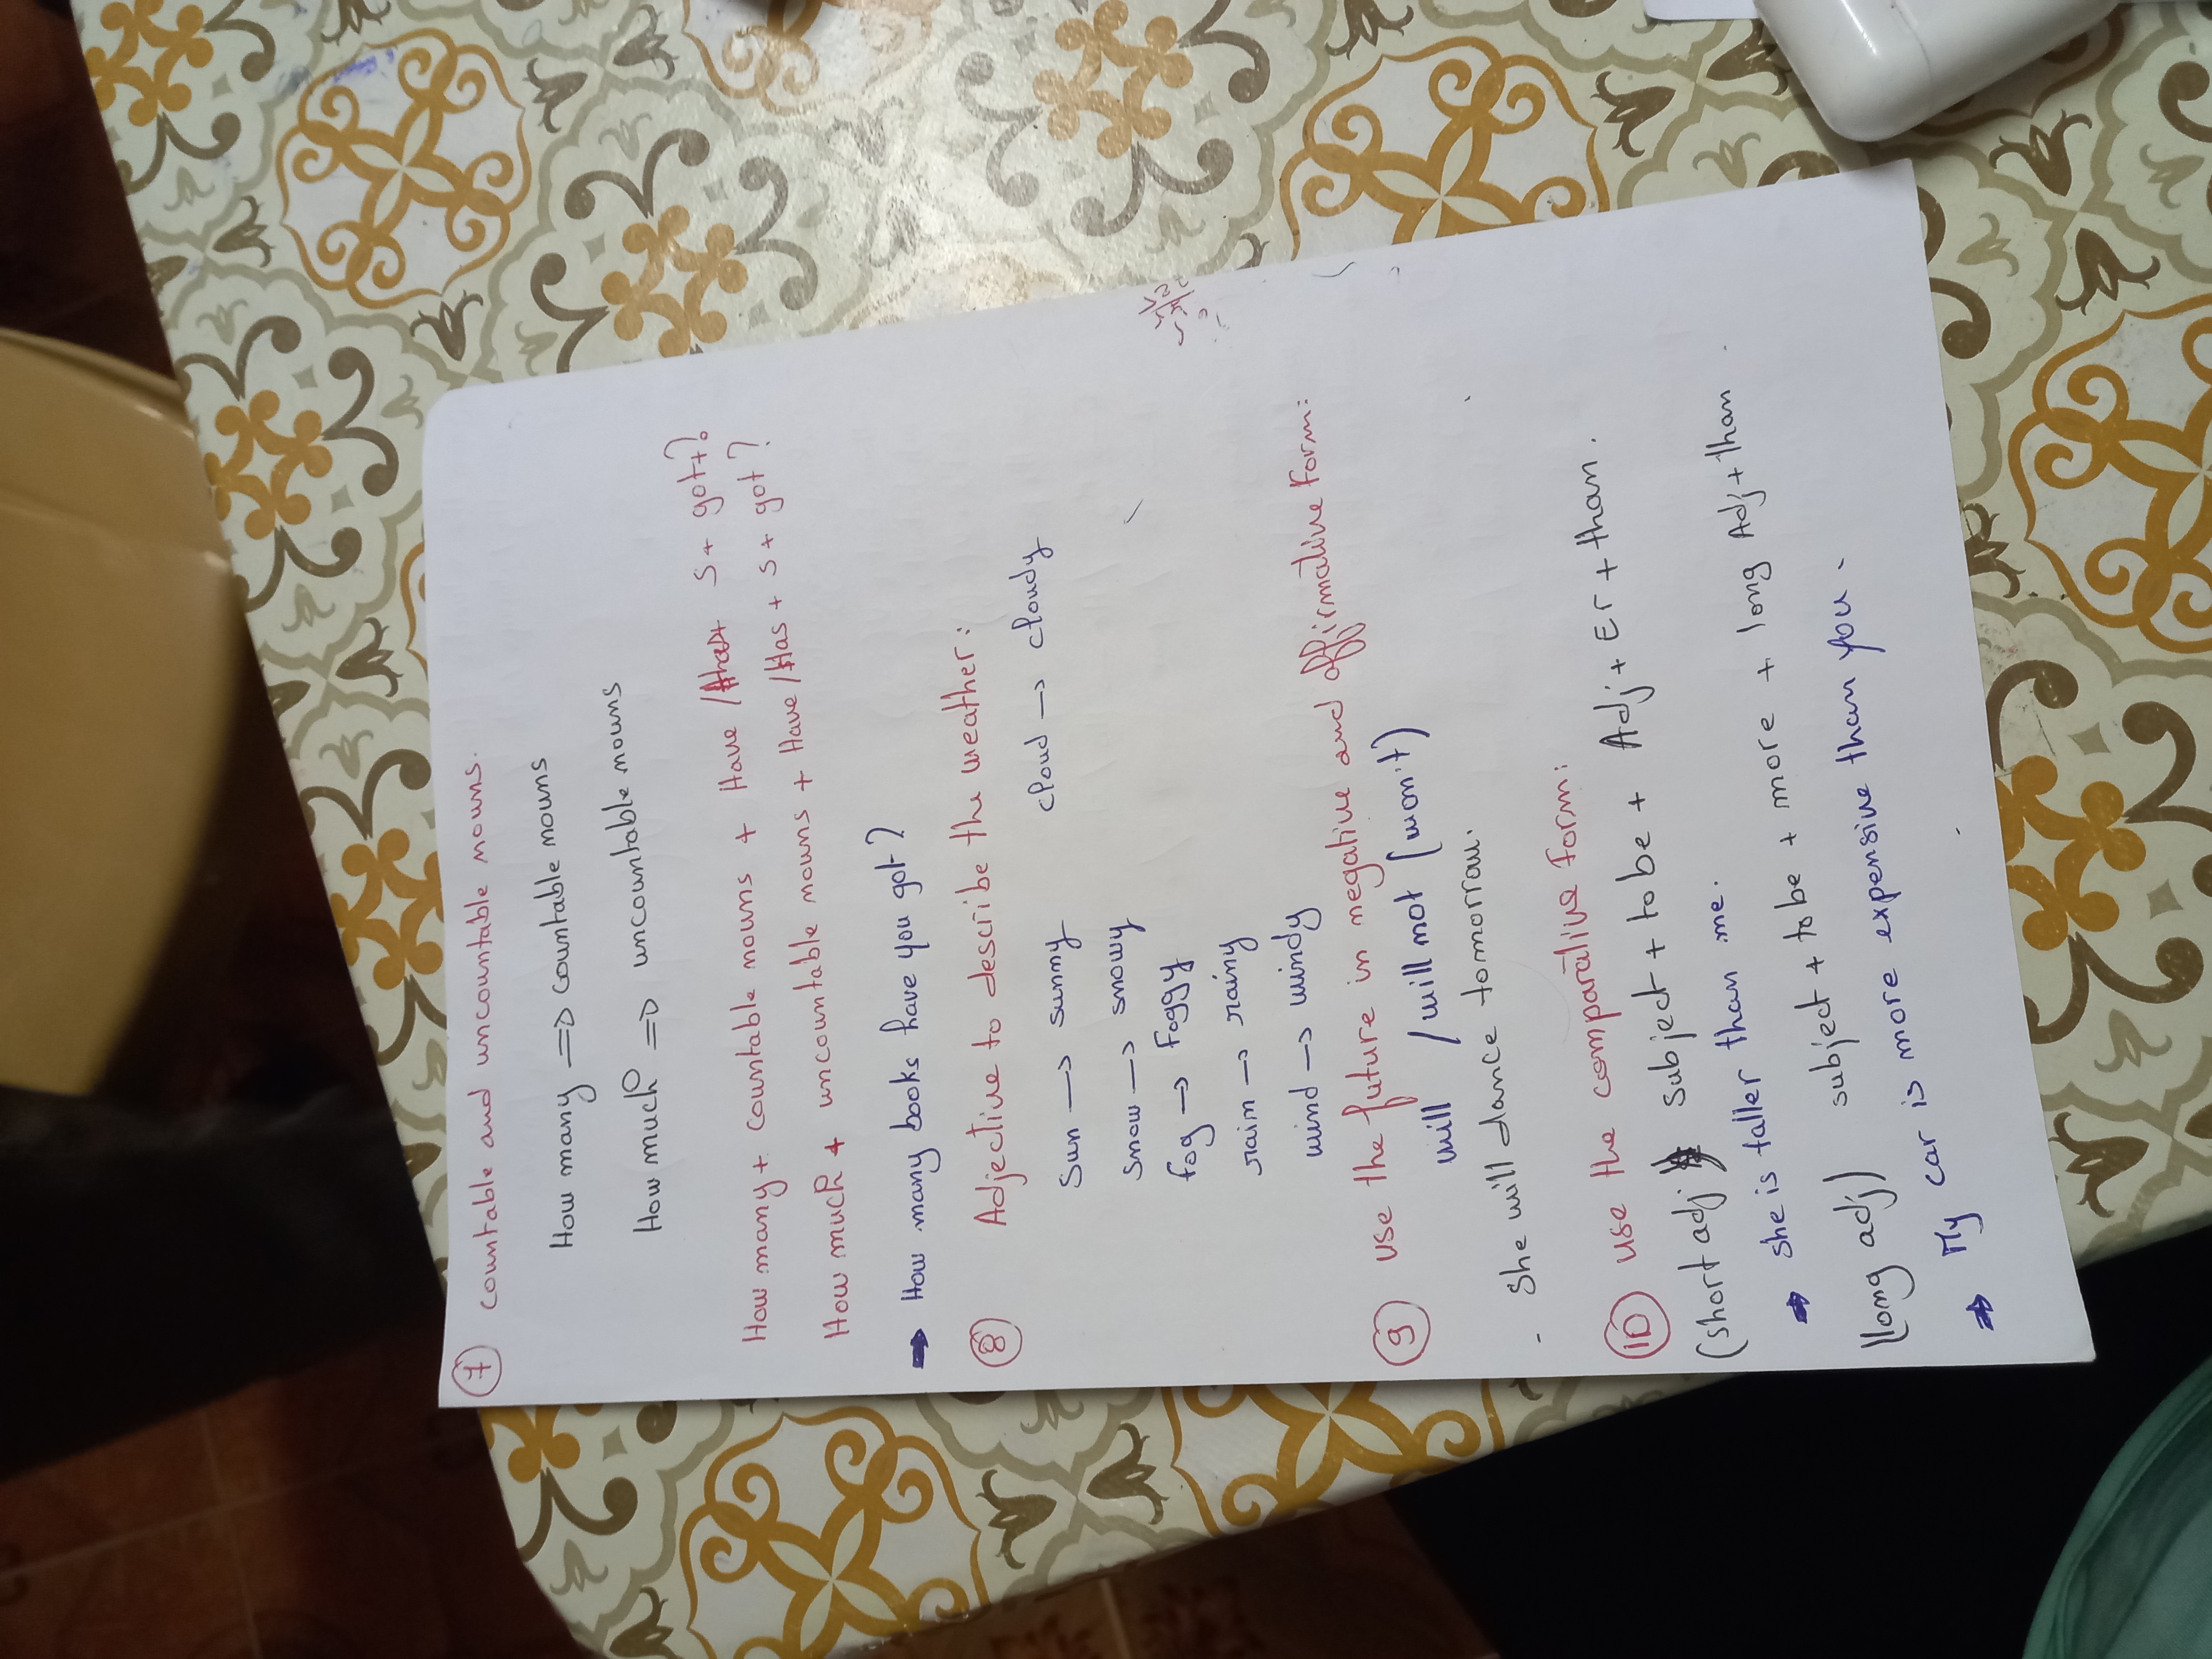 7 countable and uncountable nouns.
How many => countable nouns
How much => uncountable nouns
How many + countable nouns + Have / Has + S + got + ?
How much + uncountable nouns + Have / Has + S + got ?
→ How many books have you got ?
8 Adjective to describe the weather :
Sun → sunny cloud → cloudy
snow → snowy
fog → Foggy
rain → rainy
wind → windy
9 Use the future in negative and affirmative Form :
will / will not (won't)
- She will dance tomorrow.
10 Use the comparative Form :
(short adj) Subject + to be + Adj + Er + than.
→ she is taller than me.
(long adj) subject + to be + more + long Adj + than
→ My car is more expensive than you.